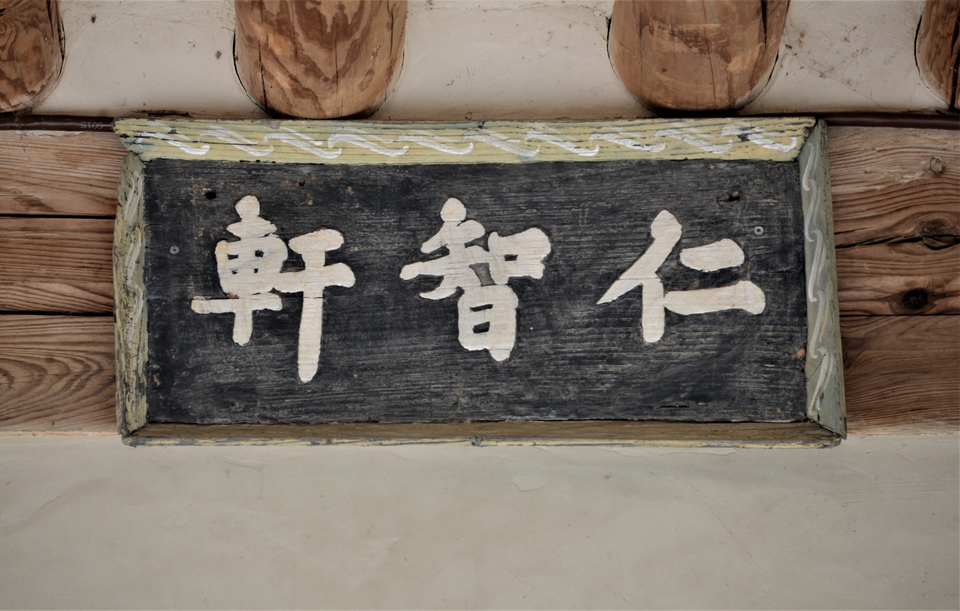 仁智軒